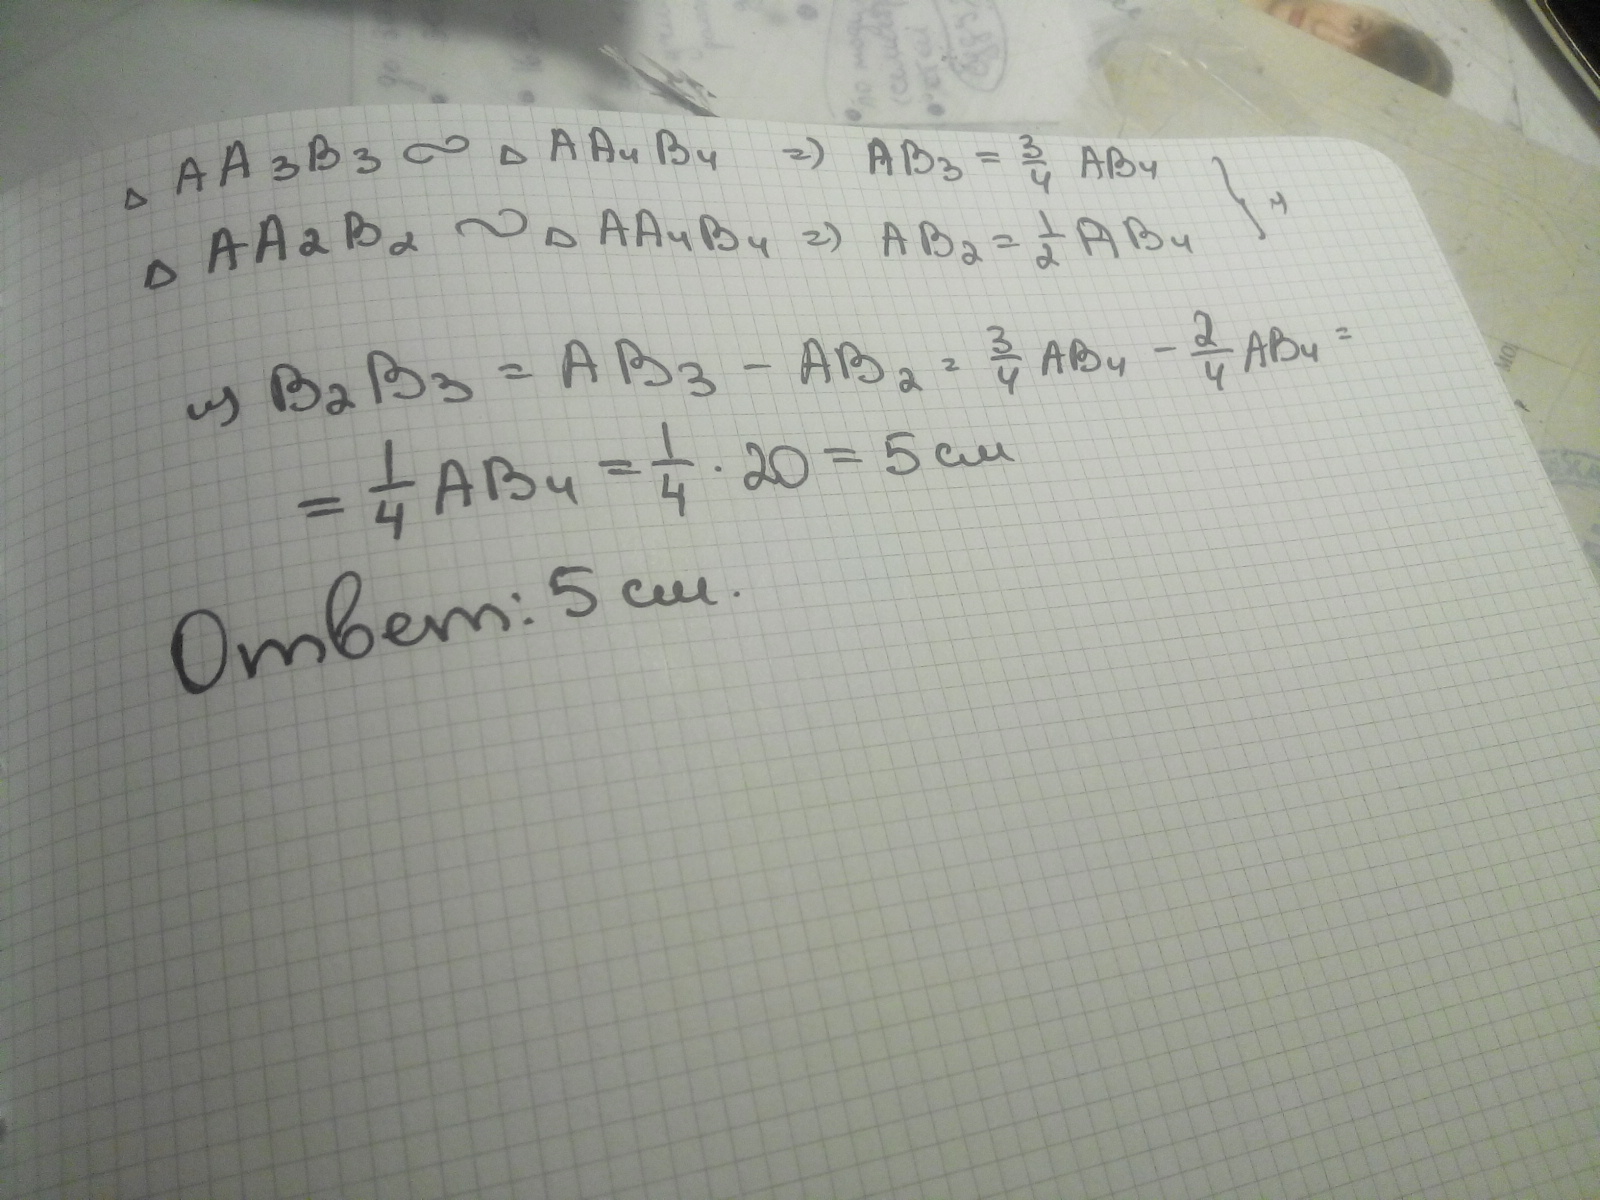 △ AA₃B₃ ∾ △ AA₄B₄ => AB₃ = 3/4 AB₄ }=>
△ AA₂B₂ ∾ △ AA₄B₄ => AB₂ = 1/2 AB₄
=> B₂B₃ = AB₃ - AB₂ = 3/4 AB₄ - 2/4 AB₄ =
= 1/4 AB₄ = 1/4 · 20 = 5 см
Ответ: 5 см.